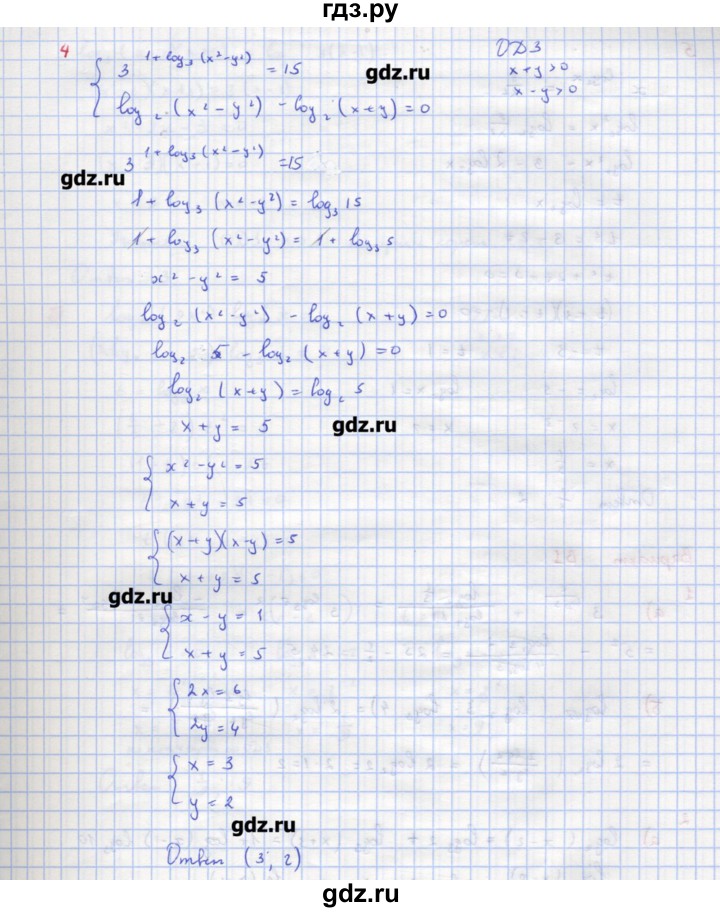 гдз.ру
4
{ 3^(1+log₃(x²-y²)) = 15
ОДЗ
x+y>0
x-y>0
gdz.ru
log₂(x²-y²) - log₂(x+y)=0
3^(1+log₃(x²-y²)) =15
gdz.ru
1+log₃(x²-y²)=log₃15
1+log₃(x²-y²)= 1+log₃5
x²-y²= 5
log₂(x²-y²) -log₂(x+y)=0
log₂ 5 -log₂(x+y)=0
log₂(x+y)=log₂5
x+y= 5
gdz.ru
{ x²-y²=5
x+y=5
{ (x+y)(x-y)=5
x+y=5
gdz.ru
{ x-y=1
x+y=5
{ 2x=6
2y=4
{ x=3
y=2
gdz.ru
Ответ (3; 2)
gdz.ru